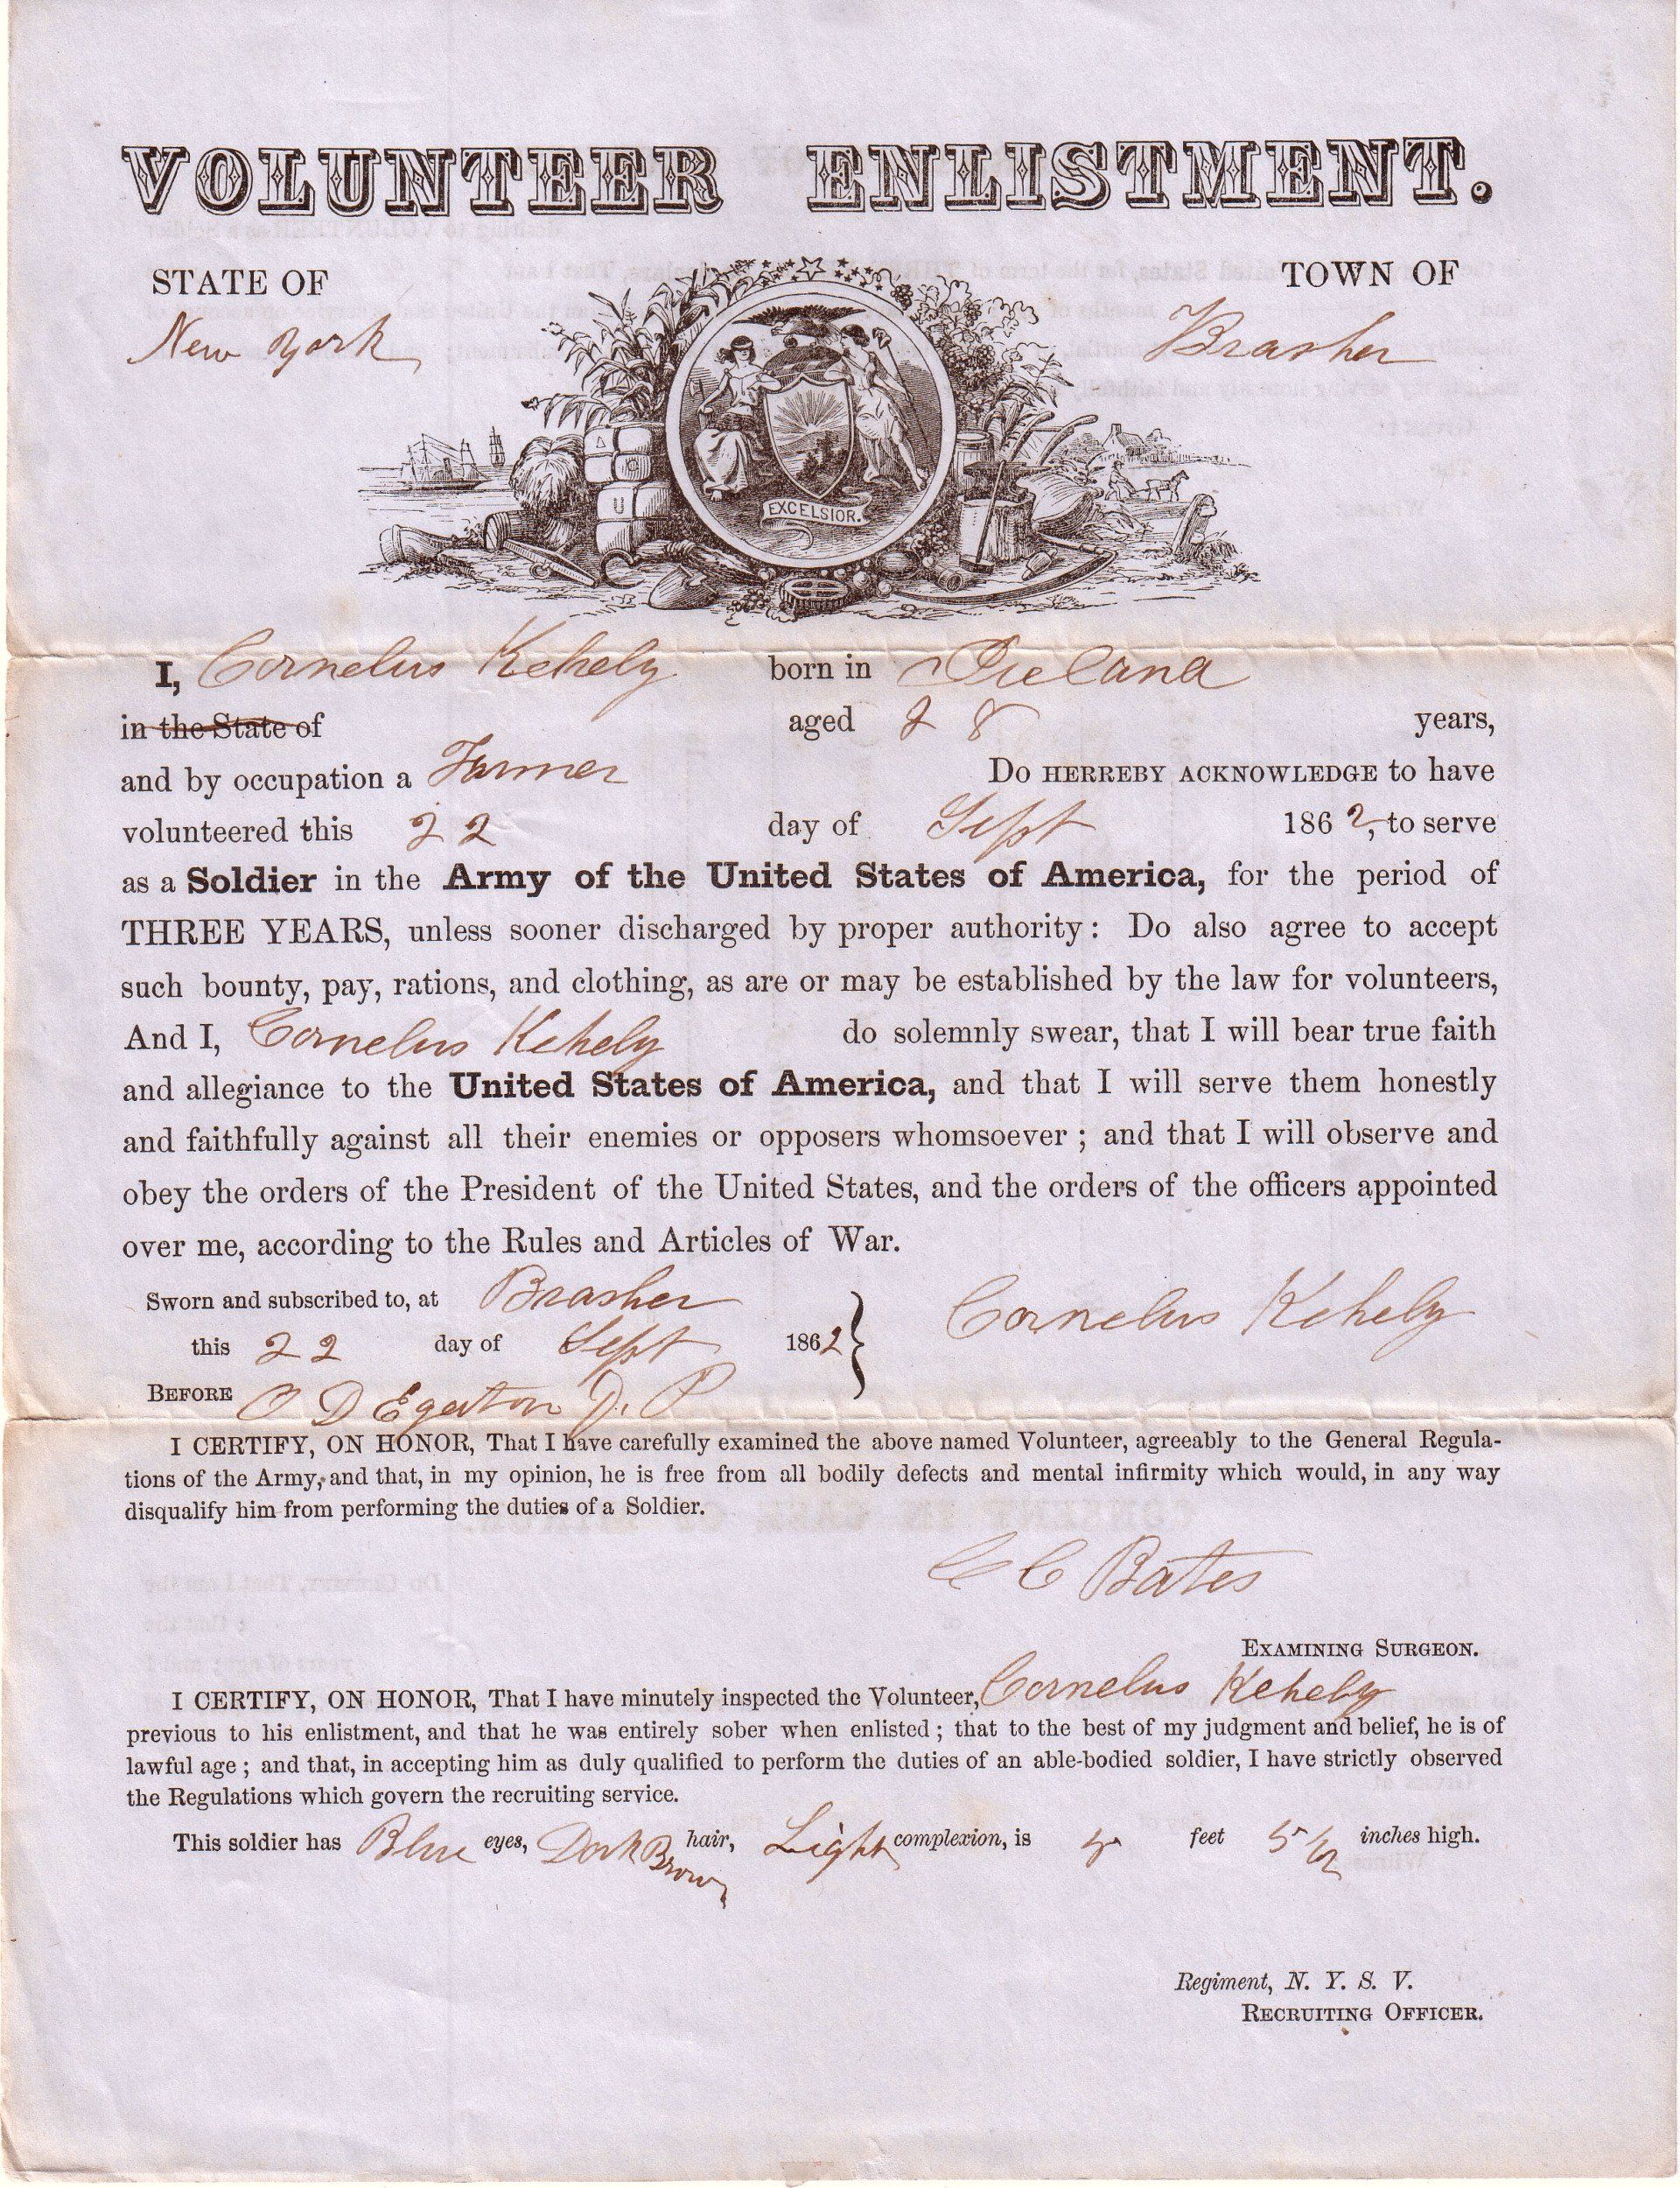 VOLUNTEER ENLISTMENT.
STATE OF
New York
TOWN OF
Brasher
EXCELSIOR.
U
I, Cornelus Kehely born in Ireland
in the State of aged 28 years,
and by occupation a Farmer Do HERREBY ACKNOWLEDGE to have
volunteered this 22 day of Sept 1862, to serve
as a Soldier in the Army of the United States of America, for the period of
THREE YEARS, unless sooner discharged by proper authority: Do also agree to accept
such bounty, pay, rations, and clothing, as are or may be established by the law for volunteers,
And I, Cornelus Kehely do solemnly swear, that I will bear true faith
and allegiance to the United States of America, and that I will serve them honestly
and faithfully against all their enemies or opposers whomsoever; and that I will observe and
obey the orders of the President of the United States, and the orders of the officers appointed
over me, according to the Rules and Articles of War.
Sworn and subscribed to, at Brasher
this 22 day of Sept 1862
Cornelus Kehely
BEFORE O D Egerton J. P
I CERTIFY, ON HONOR, That I have carefully examined the above named Volunteer, agreeably to the General Regula-
tions of the Army, and that, in my opinion, he is free from all bodily defects and mental infirmity which would, in any way
disqualify him from performing the duties of a Soldier.
C Bates
EXAMINING SURGEON.
I CERTIFY, ON HONOR, That I have minutely inspected the Volunteer, Cornelus Kehely
previous to his enlistment, and that he was entirely sober when enlisted; that to the best of my judgment and belief, he is of
lawful age; and that, in accepting him as duly qualified to perform the duties of an able-bodied soldier, I have strictly observed
the Regulations which govern the recruiting service.
This soldier has Blue eyes, Dark Brown hair, Light complexion, is 5 feet 5 1/2 inches high.
Regiment, N. Y. S. V.
RECRUITING OFFICER.